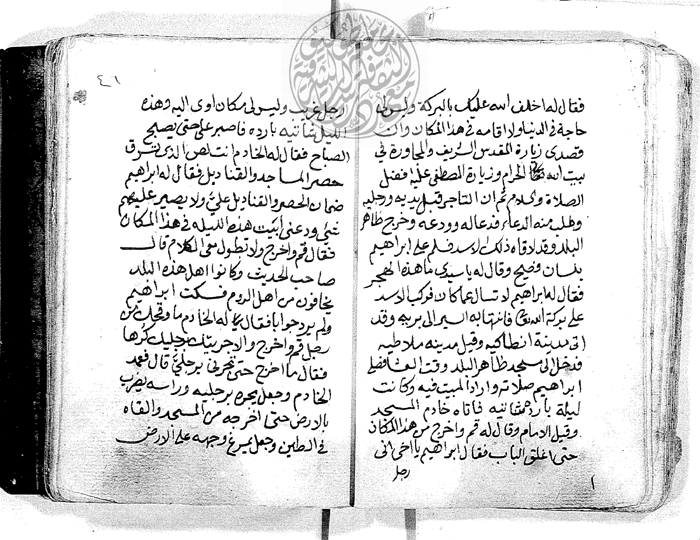 فقال له اخلف الله عليك بالبركة وليس لي
حاجة في الدنيا ولا اقامه في هذا المكان وان
وقصدى زيارة المقدس الشريف والمجاورة في
بيت الله الحرام وزيارة المصطفى عليه افضل
الصلاة والسلام ثم ان التاجر قبل يديه ورجليه
وطلب منه الدعاء فدعا له وودعه وخرج ظاهر
البلد وقد لاقاه ذلك الاسد فلم على ابراهيم
بلسان فصيح وقال له يا سيدى ما هذا الهجر
فقال له ابراهيم لا تسال عما كان فركب الاسد
على بركة الله تعا فانتها به السير الى بريه وقد
اتى مدينة انطاكيه وقيل مدينه ملاطيه
فدخل الى مسجد ظاهر البلد وقت العشا فصلى
ابراهيم صلاته واراد المبيت فيه وكانت
ليلة باردة شاتيه فاتاه خادم المسجد
وقيل الامام وقال له قم واخرج من هذا المكان
حتى اغلق الباب فقال ابراهيم يا اخى انى
رجل
٤١
رجل غريب وليس لى مكان اوى اليه وهذه
الليل شاتيه بارده فاصبر على حتى يصبح
الصباح فقال له الخادم انت لص الذى تسرق
حصر المساجد والقناديل فقال له ابراهيم
ضمان الحصر والقناديل على ولا يصير عليهم
شى ودعنى ابيت هذه الليله في هذا المكان
فقال قم واخرج ولا تطول معى الكلام قال
صاحب الحديث وكانوا اهل هذه البلد
يخافون من اهل الروم فسكت ابراهيم
ولم يرد جوابا فقال له الخادم ما وقحك من
رجل قم واخرج والا جريتك برجليك كرها
فقال ما اخرج حتى تجرنى برجلى قال فعمد
الخادم وجعل يجره برجليه وراسه يضرب
بالارض حتى اخرجه من المسجد والقاه
في الطين وجعل يمرغ وجهه على الارض